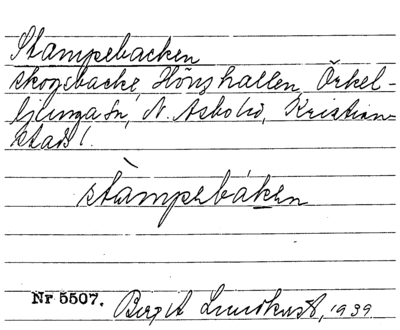 Stampebacken
skogsbacke, Hönshallen, Örkel-
ljunga sn, N. Asbo hd, Kristian-
stads l.
stàmpebáken
Nr 5507. Birgit Lundkvist, 1939